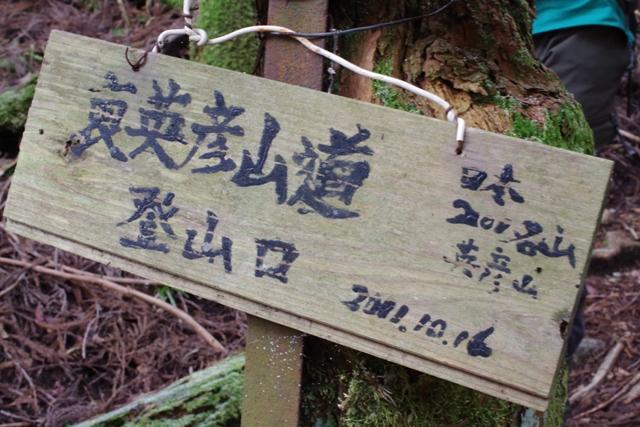 裏英彦山道
登山口
日本
200名山
英彦山
2001.10.16